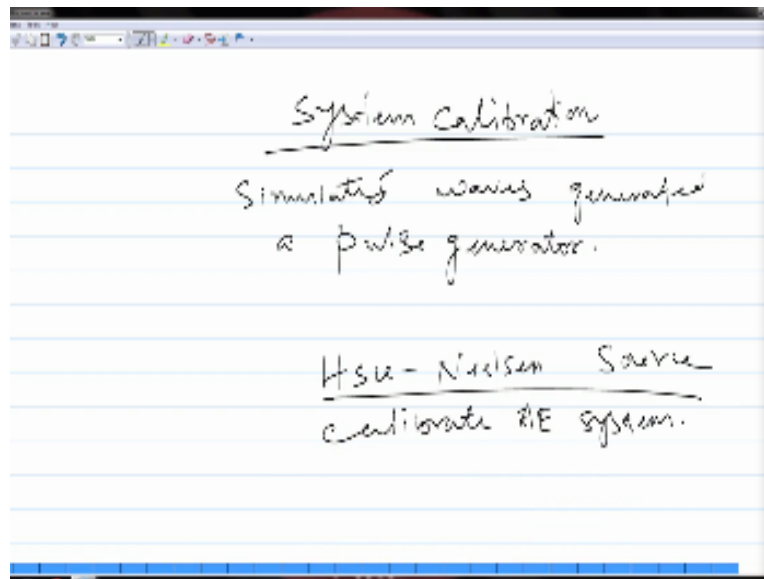 System Calibration
Simulated waves generated
a pulse generator.
Hsu-Nielsen Source
calibrate AE system.